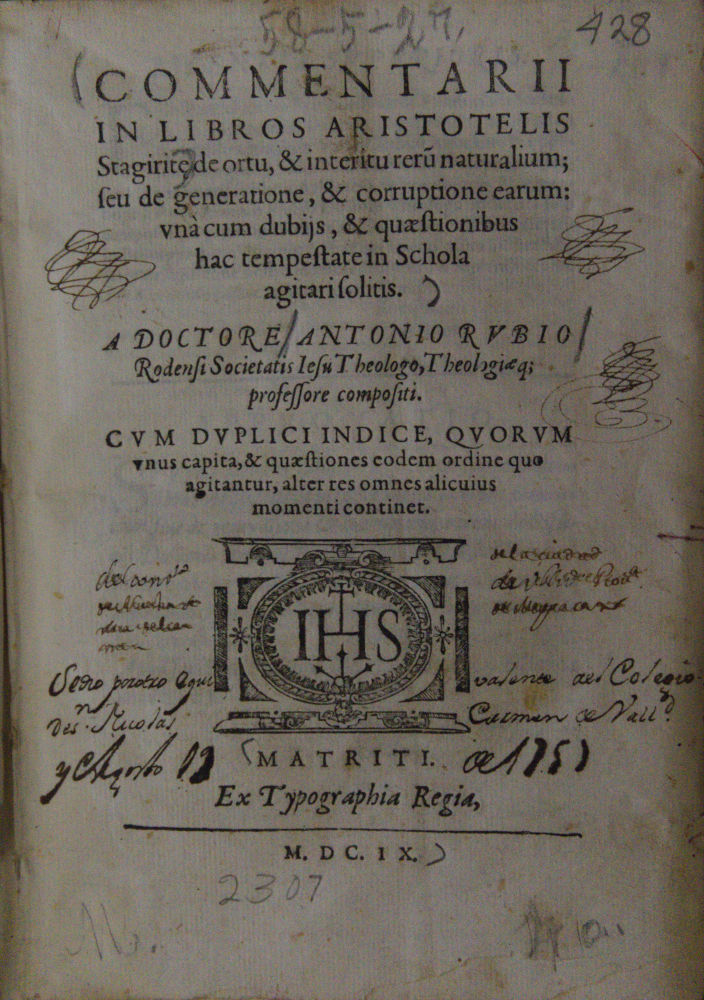 58-5-27.
428
COMMENTARII
IN LIBROS ARISTOTELIS
Stagiritę de ortu, & interitu rerũ naturalium;
seu de generatione, & corruptione earum:
vnà cum dubijs, & quæstionibus
hac tempestate in Schola
agitari solitis.
A DOCTORE ANTONIO RVBIO
Rodensi Societatis Iesu Theologo, Theologiæq;
professore compositi.
CVM DVPLICI INDICE, QVORVM
vnus capita, & quæstiones eodem ordine quo
agitantur, alter res omnes alicuius
momenti continet.
IHS
Sedio por otro equi valente del Colegio
de Sn. Nicolas Carmen de Valld.
y Agosto 12 de 1751
MATRITI.
Ex Typographia Regia,
M. DC. IX.
2307